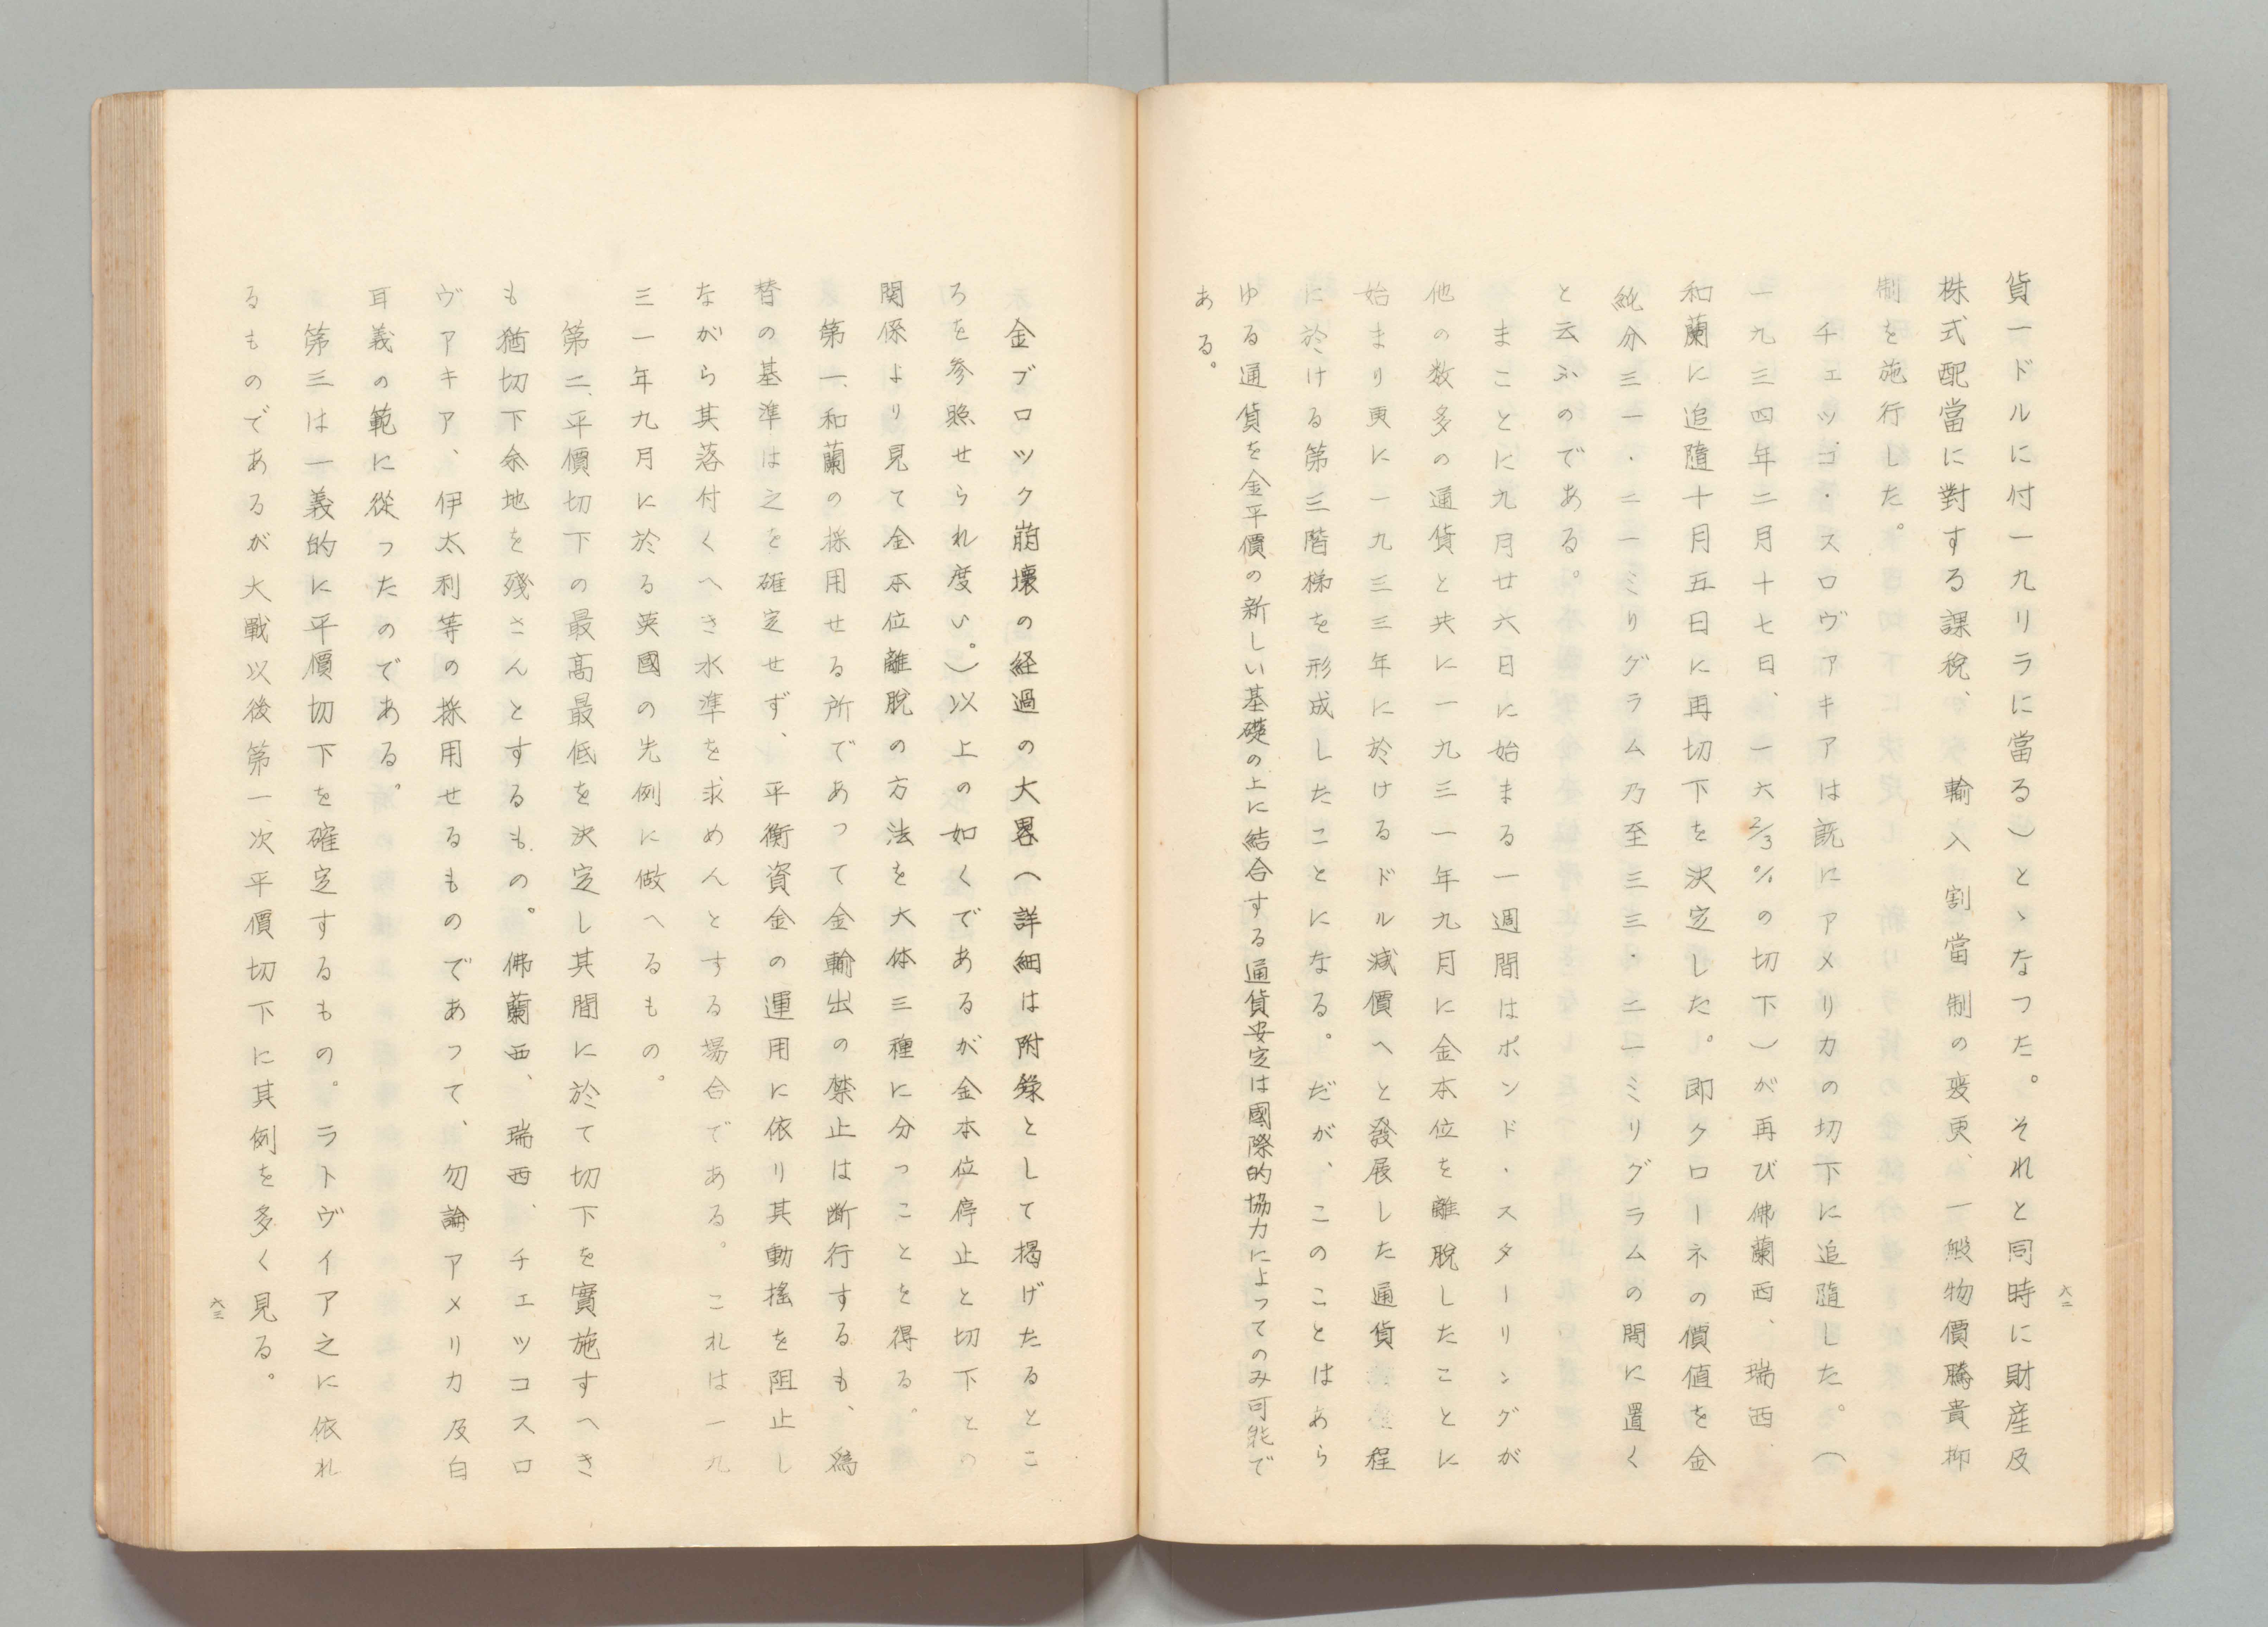 六二
貨一ドルに付一九リラに當る)とゝなつた。それと同時に財産及
株式配當に對する課税、輸入割當制の変更、一般物價騰貴抑
制を施行した。
チェッコ・スロヴアキアは既にアメリカの切下に追隨した。(
一九三四年二月十七日、一六2/3%の切下)が再び佛蘭西、瑞西
和蘭に追隨十月五日に再切下を決定した。即クローネの價値を金
純分三一・二一ミリグラム乃至三三・二一ミリグラムの間に置く
と云ふのである。
まことに九月廿六日に始まる一週間はポンド・スターリングが
他の数多の通貨と共に一九三一年九月に金本位を離脱したことに
始まり更に一九三三年に於けるドル減價へと發展した通貨 程
に於ける第三階梯を形成したことになる。だが、このことはあら
ゆる通貨を金平價の新しい基礎の上に結合する通貨安定は國際的協力によってのみ可能で
ある。
金ブロック崩壊の経過の大畧(詳細は附錄として揭げたるとこ
ろを参照せられ度い。)以上の如くであるが金本位停止と切下との
関係より見て金本位離脱の方法を大体三種に分つことを得る。
第一、和蘭の採用せる所であって金輸出の禁止は断行するも、為
替の基準は之を確定せず、平衡資金の運用に依り其動搖を阻止し
ながら其落付くへき水準を求めんとする場合である。これは一九
三一年九月に於る英國の先例に做へるもの。
第二、平價切下の最高最低を決定し其間に於て切下を實施すへき
も猶切下余地を殘さんとするもの。佛蘭西、瑞西、チェツコスロ
ヴアキア、伊太利等の採用せるものであって、勿論アメリカ及白
耳義の範に從ったのである。
第三は一義的に平價切下を確定するもの。ラトヴイア之に依れ
るものであるが大戰以後第一次平價切下に其例を多く見る。
六三